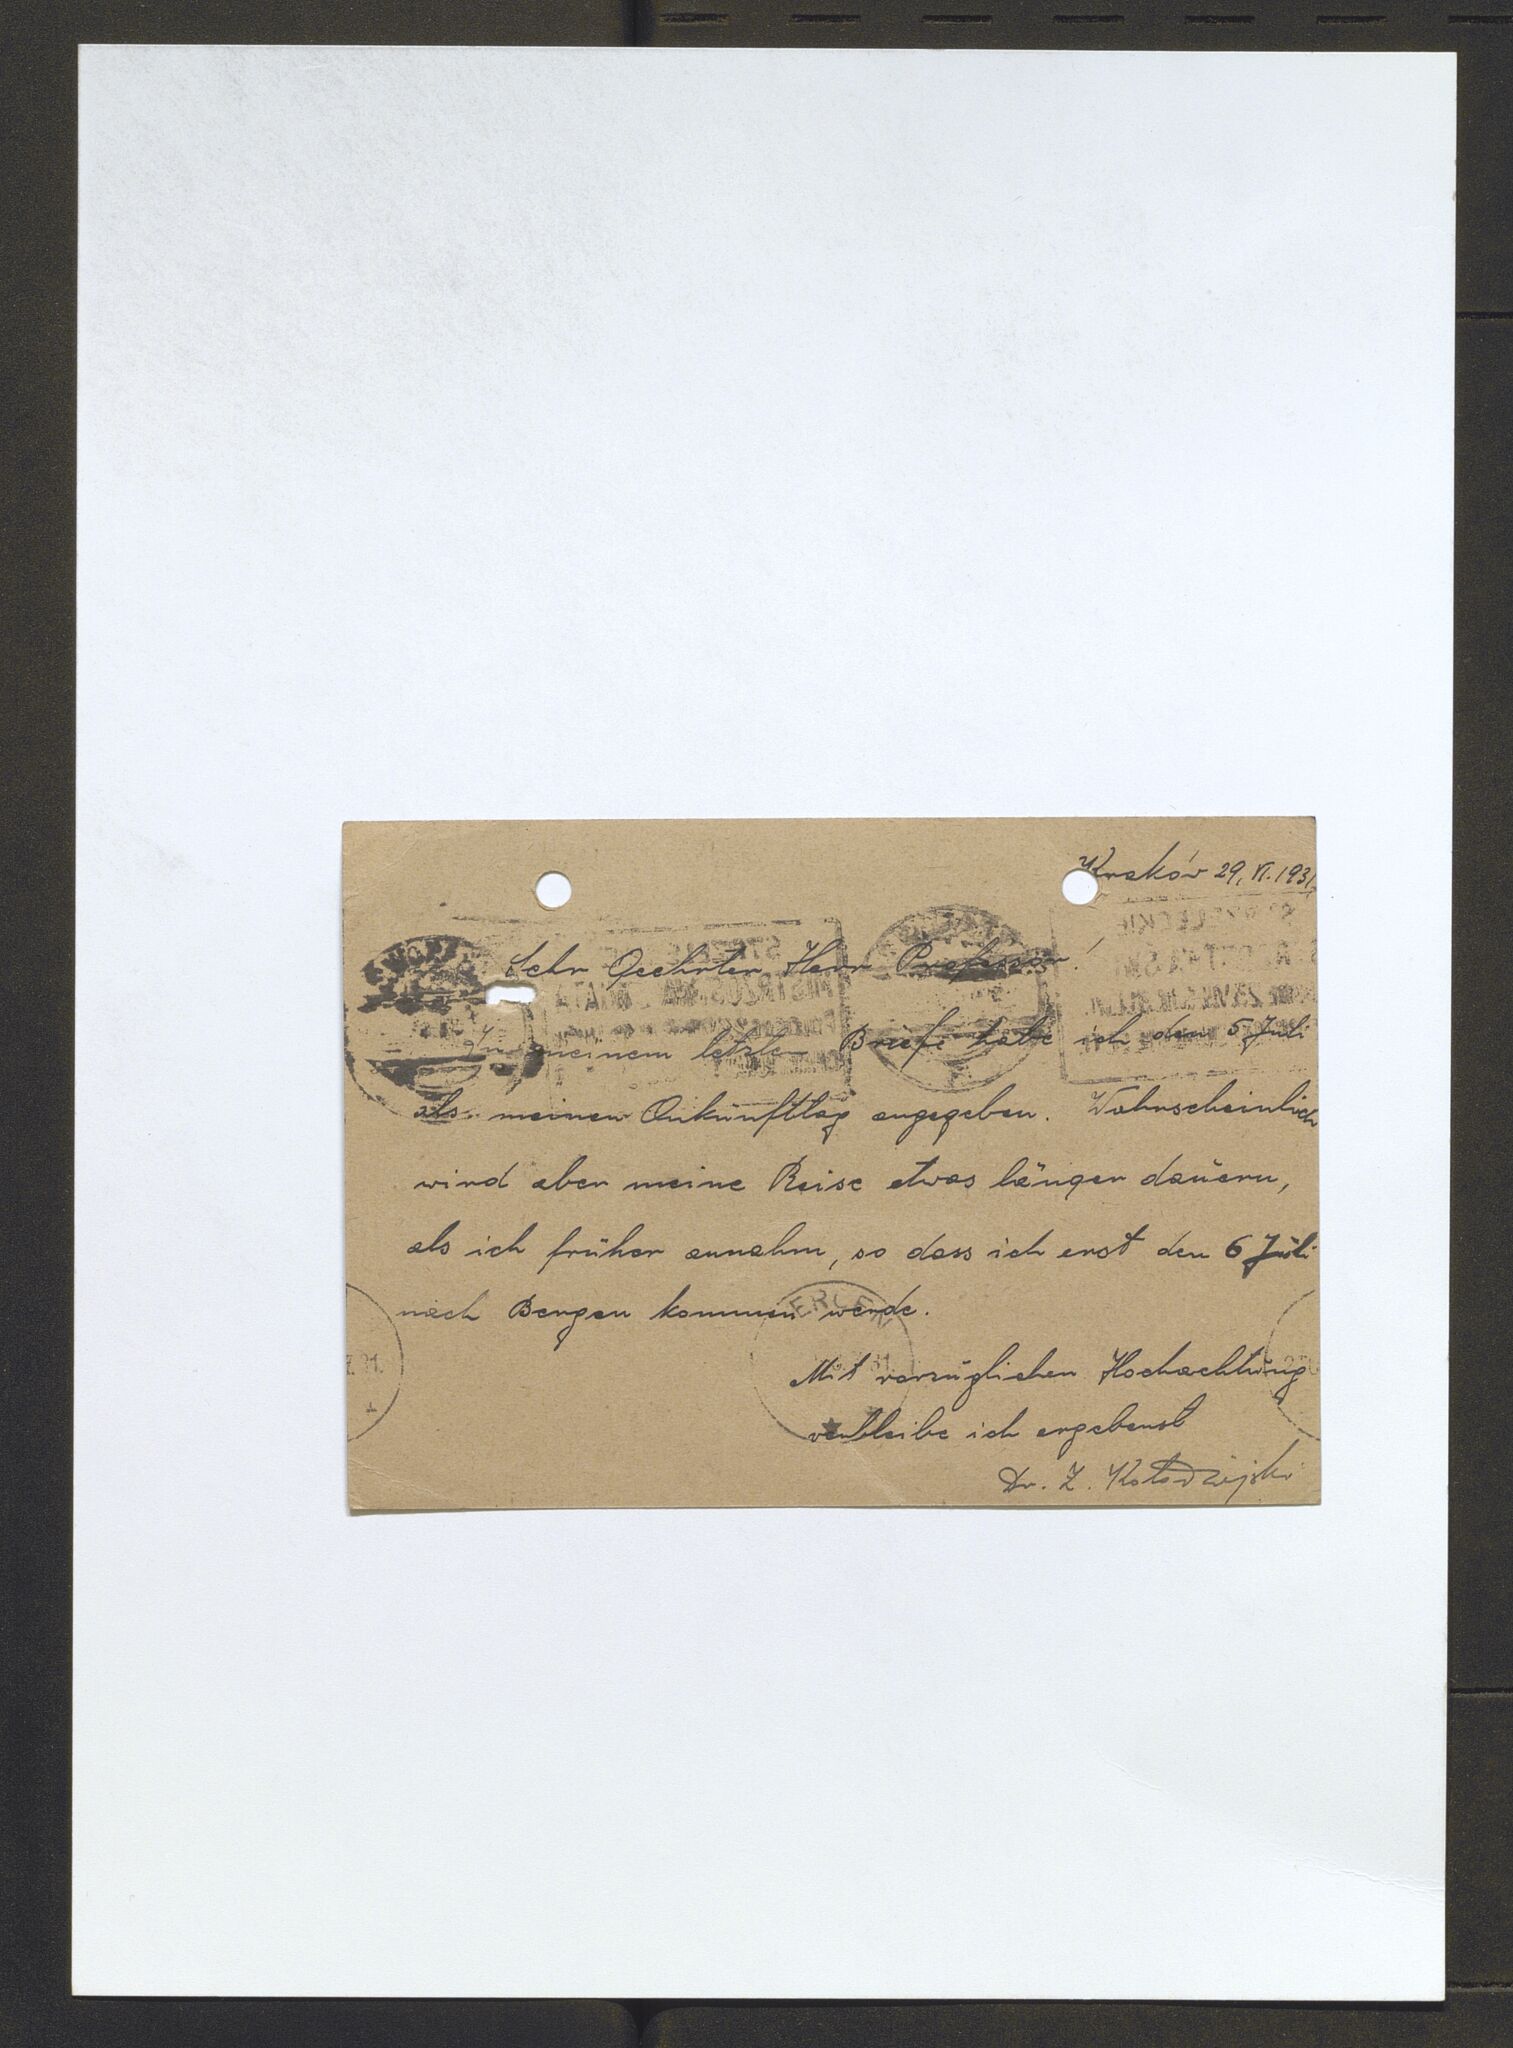 Kraków 29. VI. 1931.
Sehr Geehrter Herr Professor!
In meinem letzten Briefe habe ich den 5 Juli
als meinen Ankünfttag angegeben. Wahrscheinlich
wird aber meine Reise etwas länger daüern,
als ich früher annahm, so dass ich erst den 6 Jüli
nach Bergen kommen werde.
Mit vorzüglichen Hochachtüng
verbleibe ich ergebenst
Dr. Z.